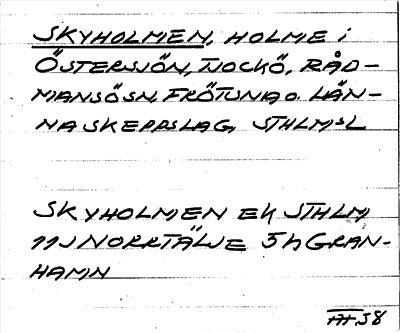 SKYHOLMEN, HOLME i
ÖSTERSJÖN, TJOCKÖ, RÅD-
MANSÖ SN, FRÖTUNA O. LÄN-
NA SKEPPSLAG, STHLMS L
SKYHOLMEN EK STHLM
11J NORRTÄLJE 5h GRAN-
HAMN